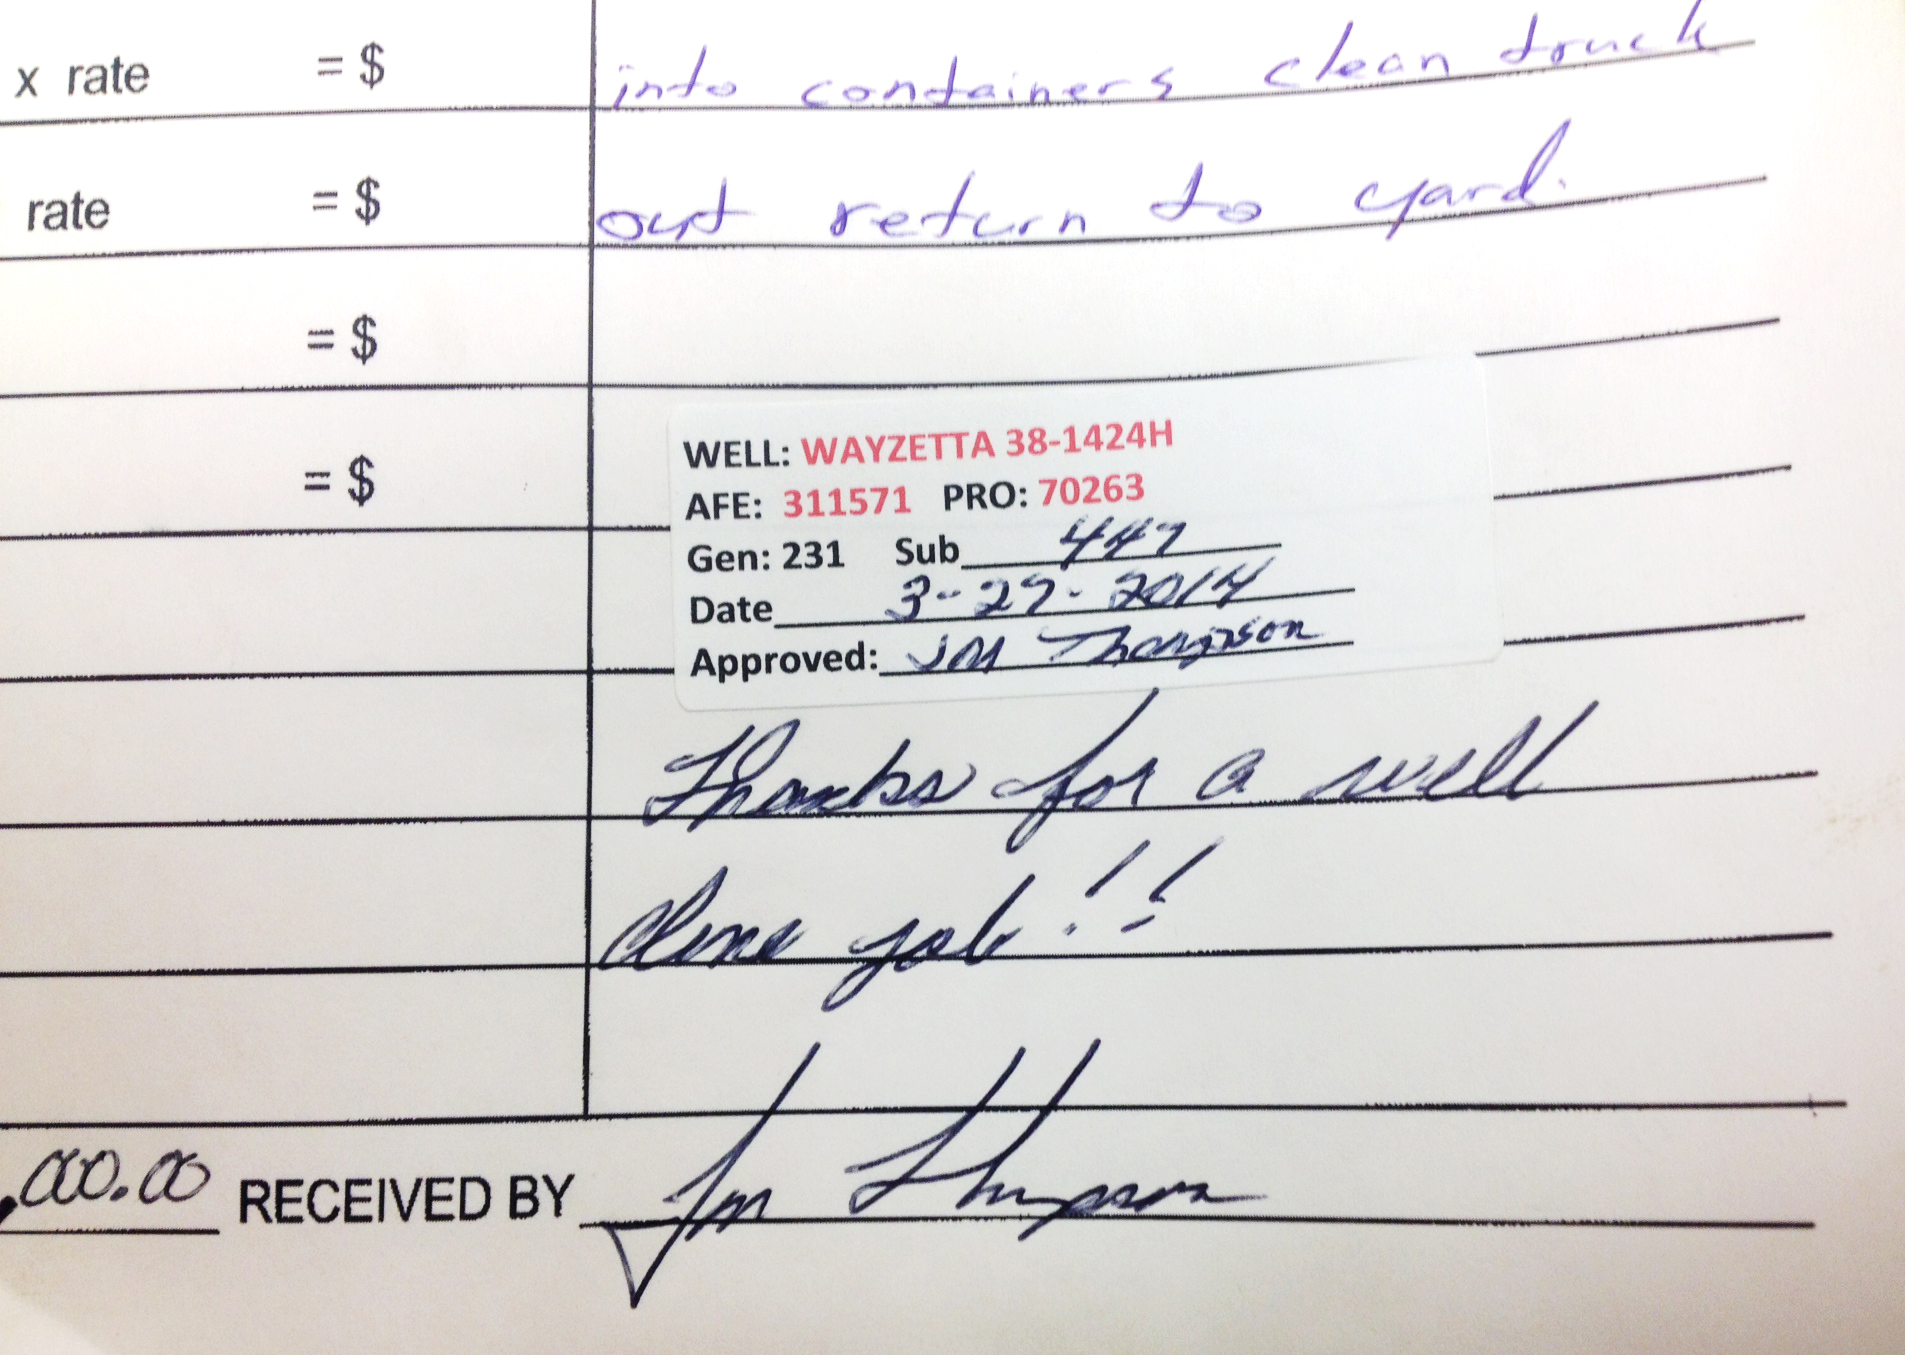 x rate = $ into containers clean truck
rate = $ out return to yard.
= $
= $
WELL: WAYZETTA 38-1424H
AFE: 311571 PRO: 70263
Gen: 231 Sub 447
Date 3-27-2014
Approved: JM Thompson
Thanks for a well
done job!!
,000.00 RECEIVED BY Jm Thompson